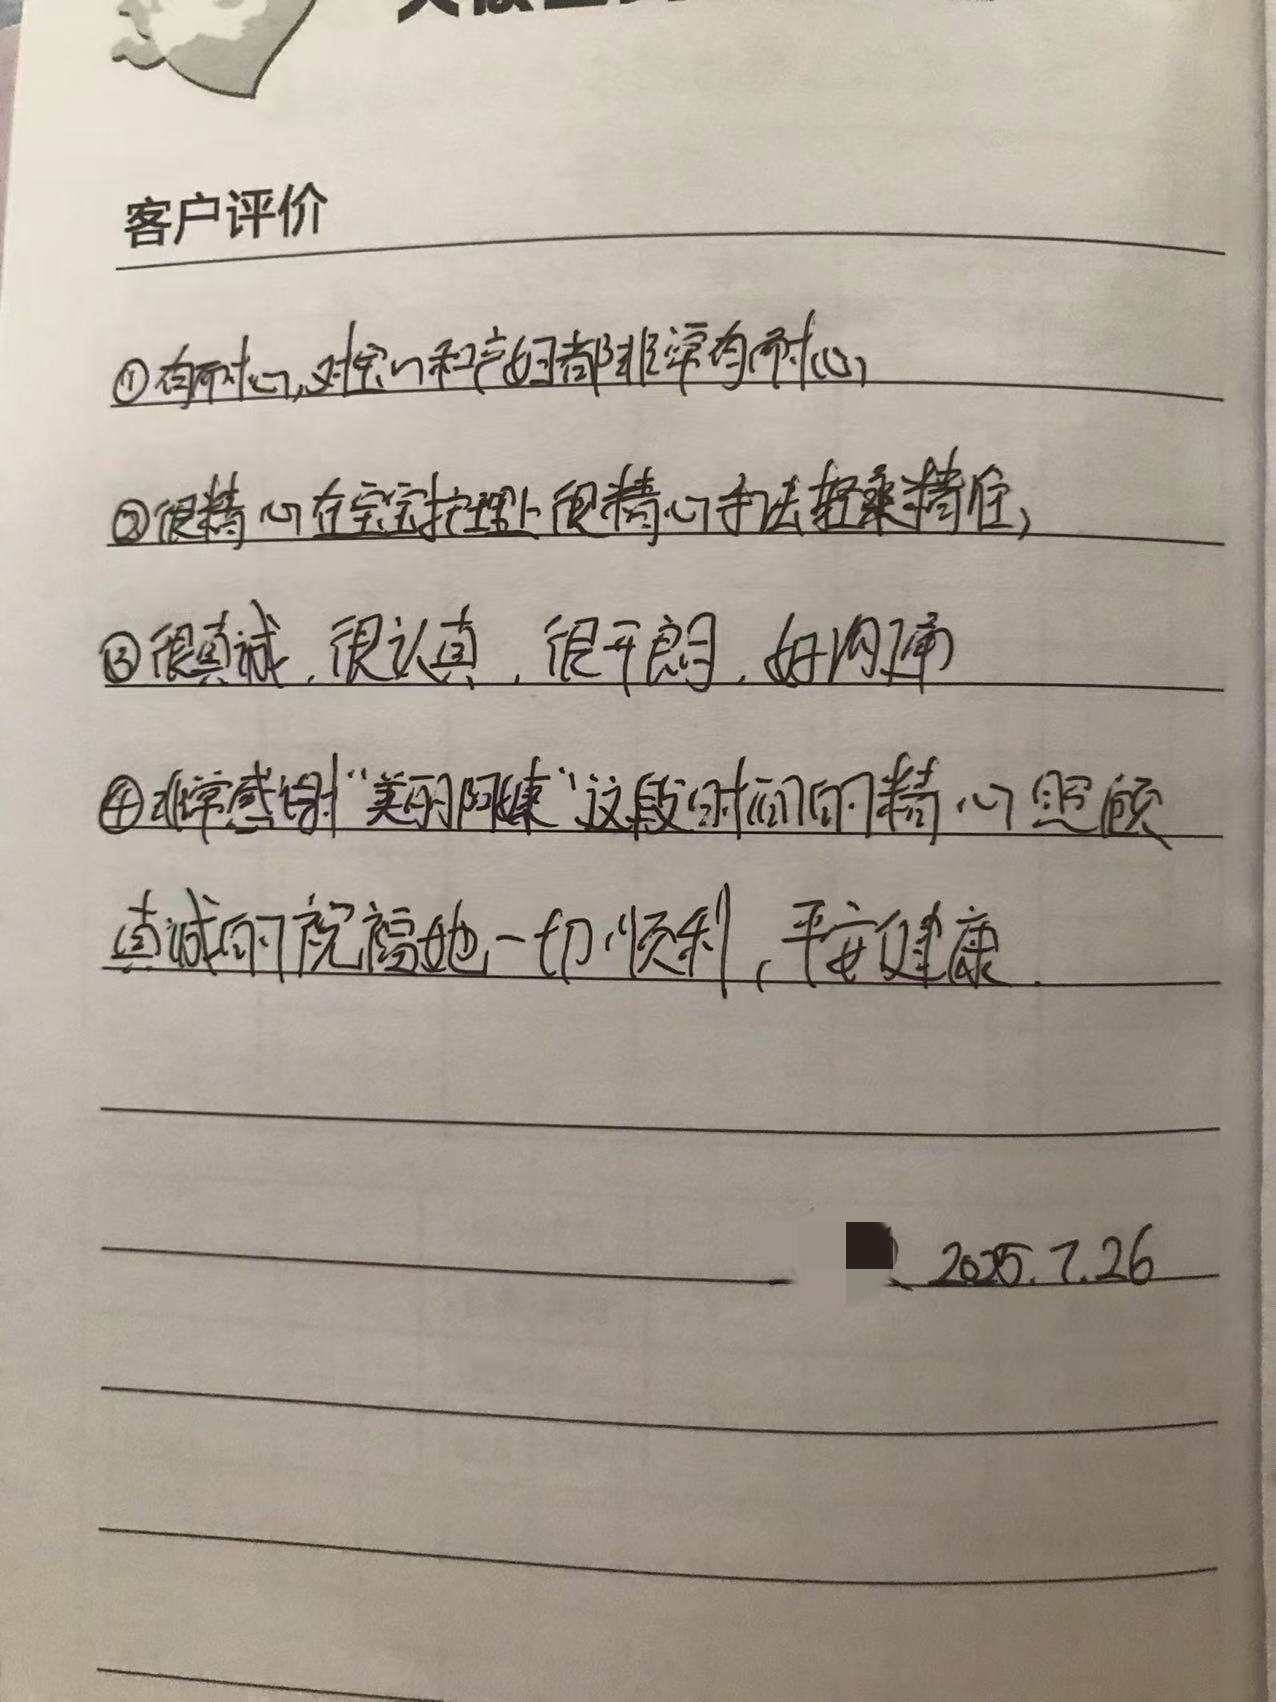 客户评价
①有耐心,对宝宝和产妇都非常有耐心,
②很精心在宝宝护理上很精心手法轻柔精准,
③很真诚.很认真.很开朗.好沟通
④非常感谢“美丽阿姨”这段时间的精心照顾
真诚的祝福她一切顺利,平安健康.
2025.7.26